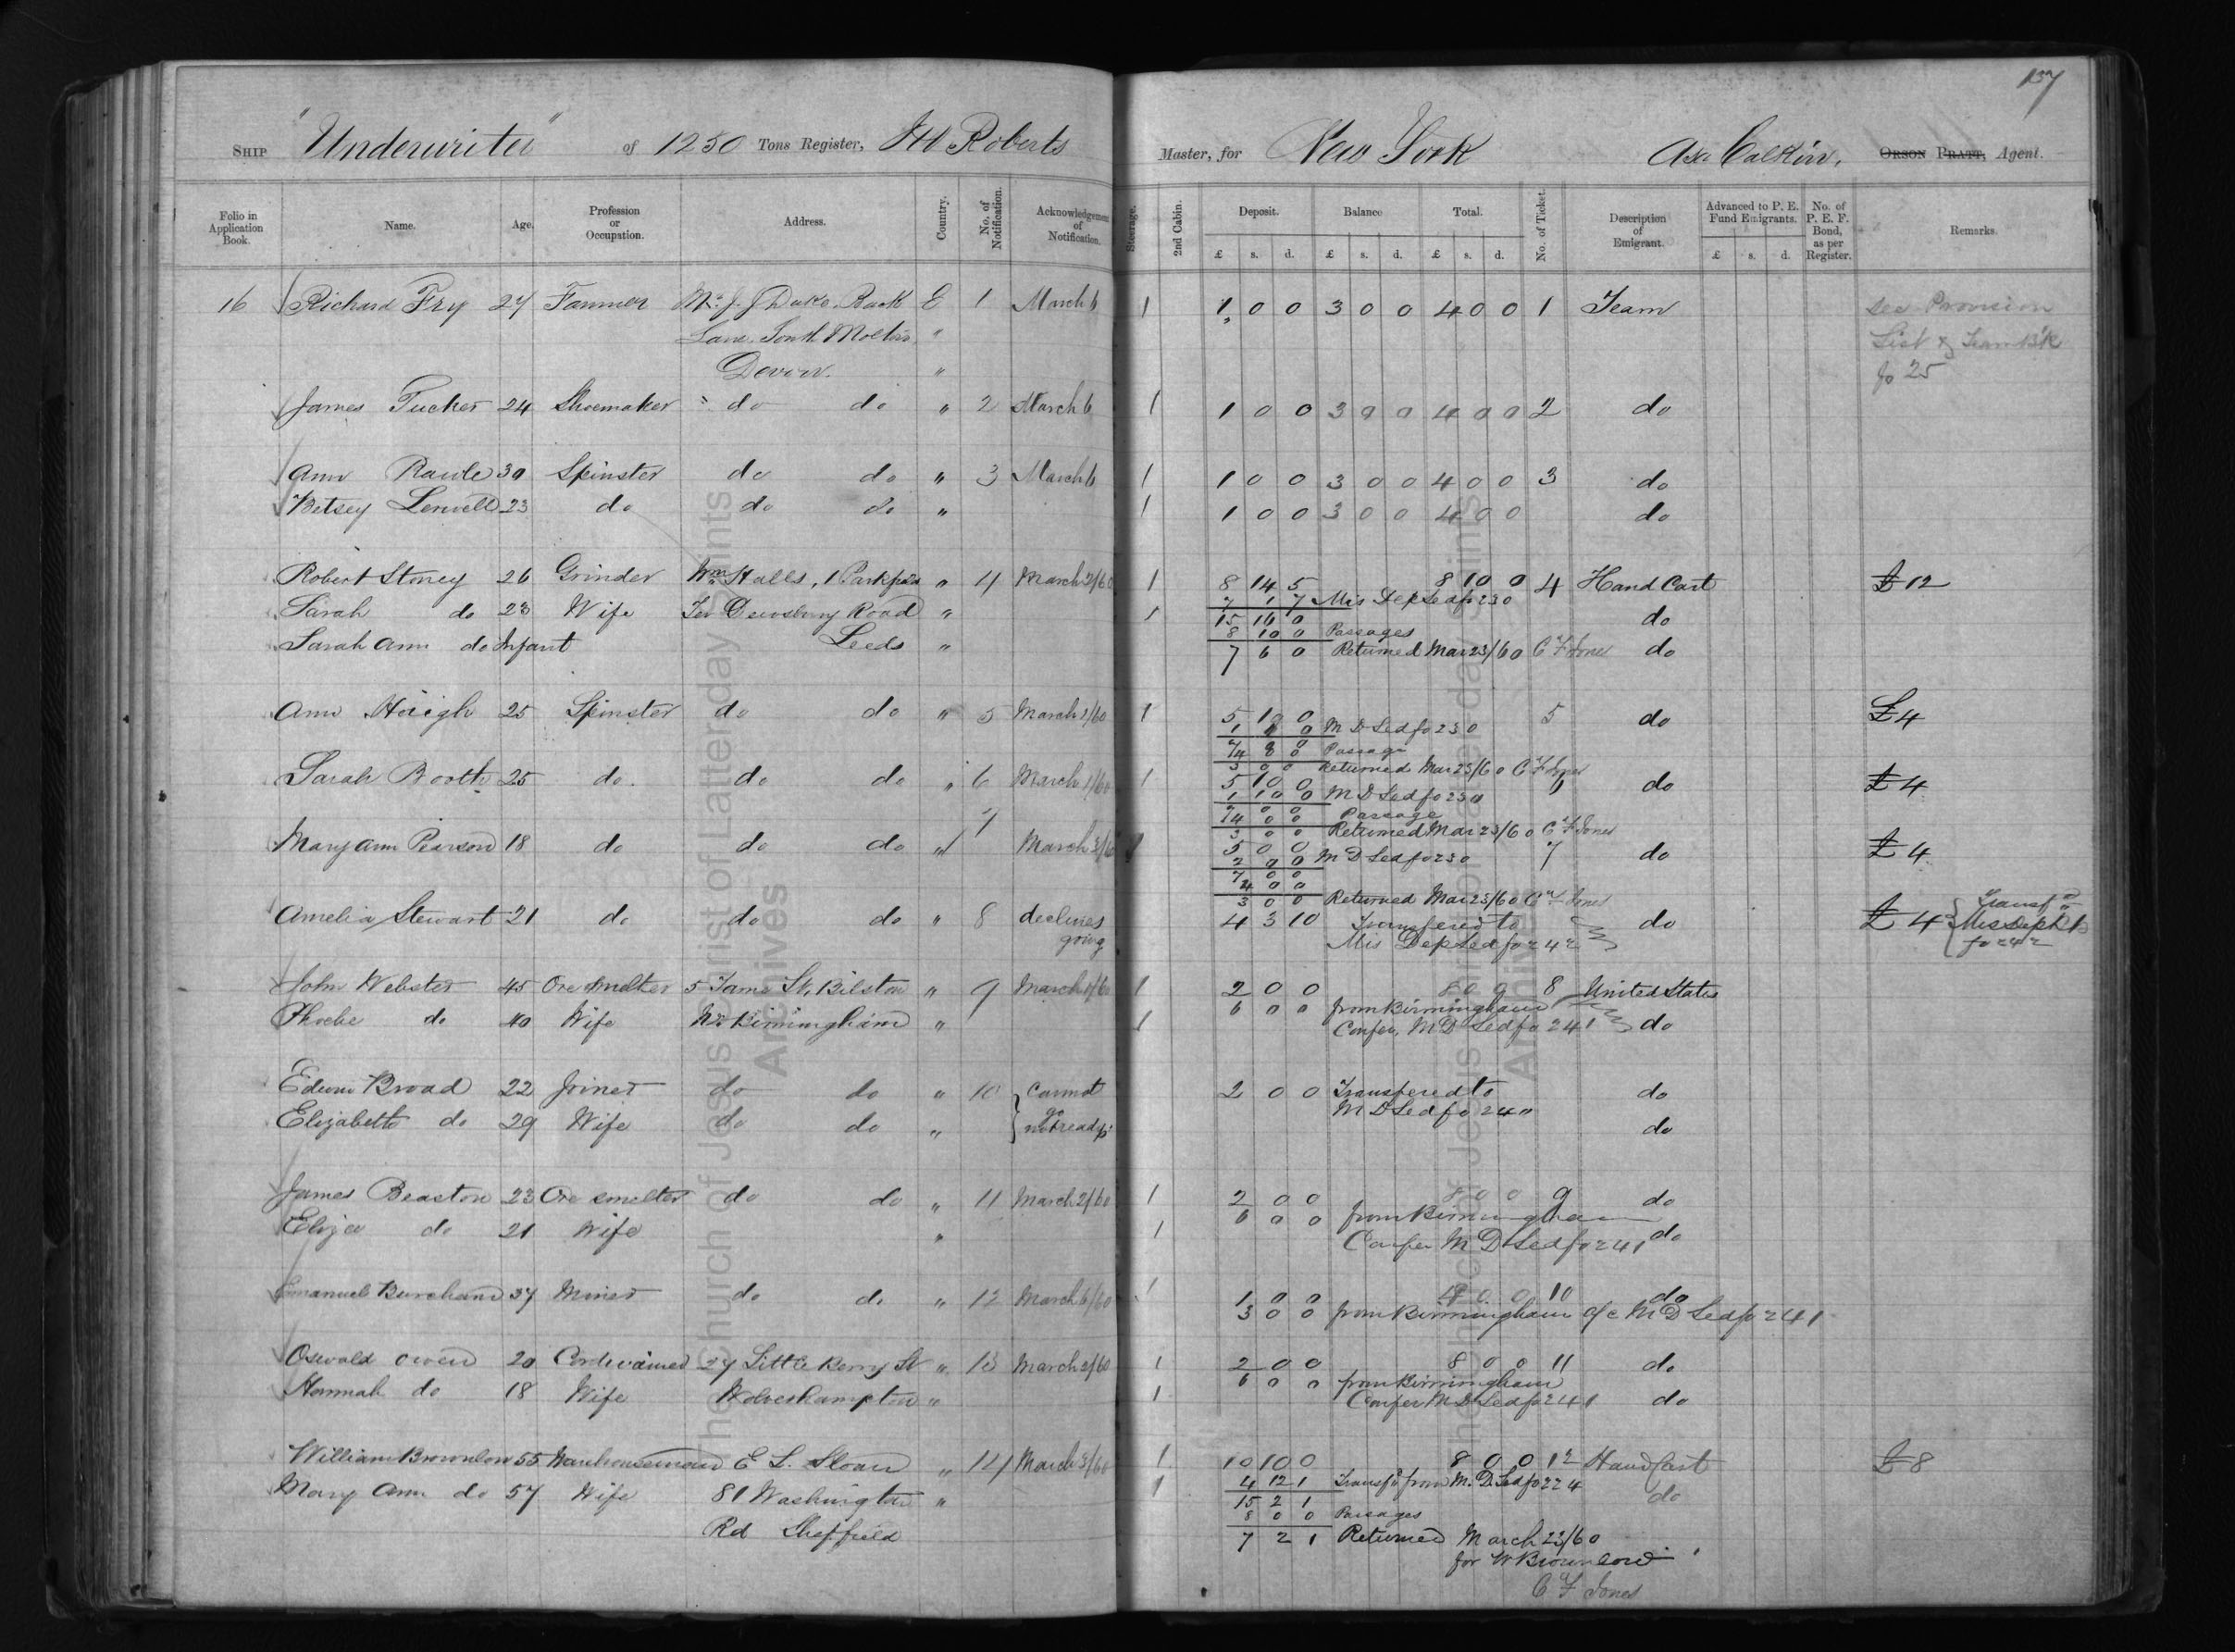 137
SHIP "Underwriter" of 1250 Tons Register, J W Roberts Master, for New York Asa Calkin, ORSON PRATT, Agent.
Folio in Application Book. Name. Age. Profession or Occupation. Address. Country. No. of Notification. Acknowledgement of Notification. Steerage. 2nd Cabin. Deposit. Balance Total. No. of Ticket. Description of Emigrant. Advanced to P. E. Fund Emigrants. No. of P. E. F. Bond, as per Register. Remarks.
£ s. d. £ s. d. £ s. d. £ s. d.
16 Richard Fry 27 Farmer Mr. J. J Duke. Back E 1 March 6 1 1 0 0 3 0 0 4 0 0 1 Team See Provision
Lane. South Molton " List & Team Bk
Devon. " fo 25
James Tucker 24 Shoemaker " do do " 2 March 6 1 1 0 0 3 0 0 4 0 0 2 do
Ann Rawle 30 Spinster do do " 3 March 6 1 1 0 0 3 0 0 4 0 0 3 do
Betsey Lerwell 23 do do do " 1 1 0 0 3 0 0 4 0 0 do
Robert Stoney 26 Grinder Wm Halls, 1 Park " 4 March 2/60 1 8 14 5 8 10 0 4 Hand Cart £12
7 1 7 Mis Dep Led fo 230
Sarah do 23 Wife Ter Dewsbury Road " 1 15 16 0 do
8 10 0 Passages
Sarah Ann do Infant Leeds " 7 6 0 Returned Mar 23/60 C F Jones do
Ann Haigh 25 Spinster do do " 5 March 2/60 1 5 10 0 5 do £4
M D Led fo 230
Passage
3 0 0 Returned Mar 23/60 C F Jones
Sarah Booth 25 do. do do " 6 March 1/60 1 5 10 0 do £4
1 10 0 M D Led fo 230
7 0 0
4 0 0 Passage
3 0 0 Returned Mar 23/60 C F Jones
Mary Ann Pearson 18 do do do " 7 March 3/60 5 0 0 7 do £4
2 0 0 M D Led fo 230
7 0 0
4 0 0
3 0 0 Returned Mar 23/60 C F Jones
Amelia Stewart 21 do do do " 8 declines going 4 3 10 Transfered to do £4 Transfd Mis Dep Ld fo 242
Mis Dep Led fo 242
John Webster 45 Ore smelter 5 Tame St, Bilston " 9 March 1 2 0 0 8 United States
6 0 0 from Birmingham
Phoebe do 40 Wife Nr Birmingham " 1 Confer, M D Led fo 241 do
Edwin Broad 22 Joiner do do " 10 Cannot go 2 0 0 Transfered to do
M D Led fo 240
Elizabeth do 29 Wife do do " not ready do
James Beaston 23 Ore smelter do do " 11 March 2/60 1 2 0 0 8 0 0 9 do
6 0 0 from Birmingham
Eliza do 21 Wife " 1 Confer M D Led fo 241 do
Emanuel Burchand 37 Miner do do " 12 March 6/60 1 1 0 0 4 0 0 10 do
3 0 0 from Birmingham a/c M D Led fo 241
Oswald Owen 20 Cordwainer 27 Little Berry St " 13 March 2/60 1 2 0 0 8 0 0 11 do
6 0 0 from Birmingham
Hannah do 18 Wife Wolverhampton " 1 Confer M D Led fo 241 do
William Brownlow 55 Warehouseman E L. Sloan " 14 March 3/60 1 10 10 0 8 0 0 12 Hand Cart £8
4 12 1 Transfd from M. D Led fo 224
Mary Ann do 57 Wife 81 Washington " 1 15 2 1 do
8 0 0 Passages
Rd Sheffield 7 2 1 Returned March 23/60
for W Brownlow
C F Jones
The Church of Jesus Christ of Latter-day Saints
Archives
The Church of Jesus Christ of Latter-day Saints
Archives